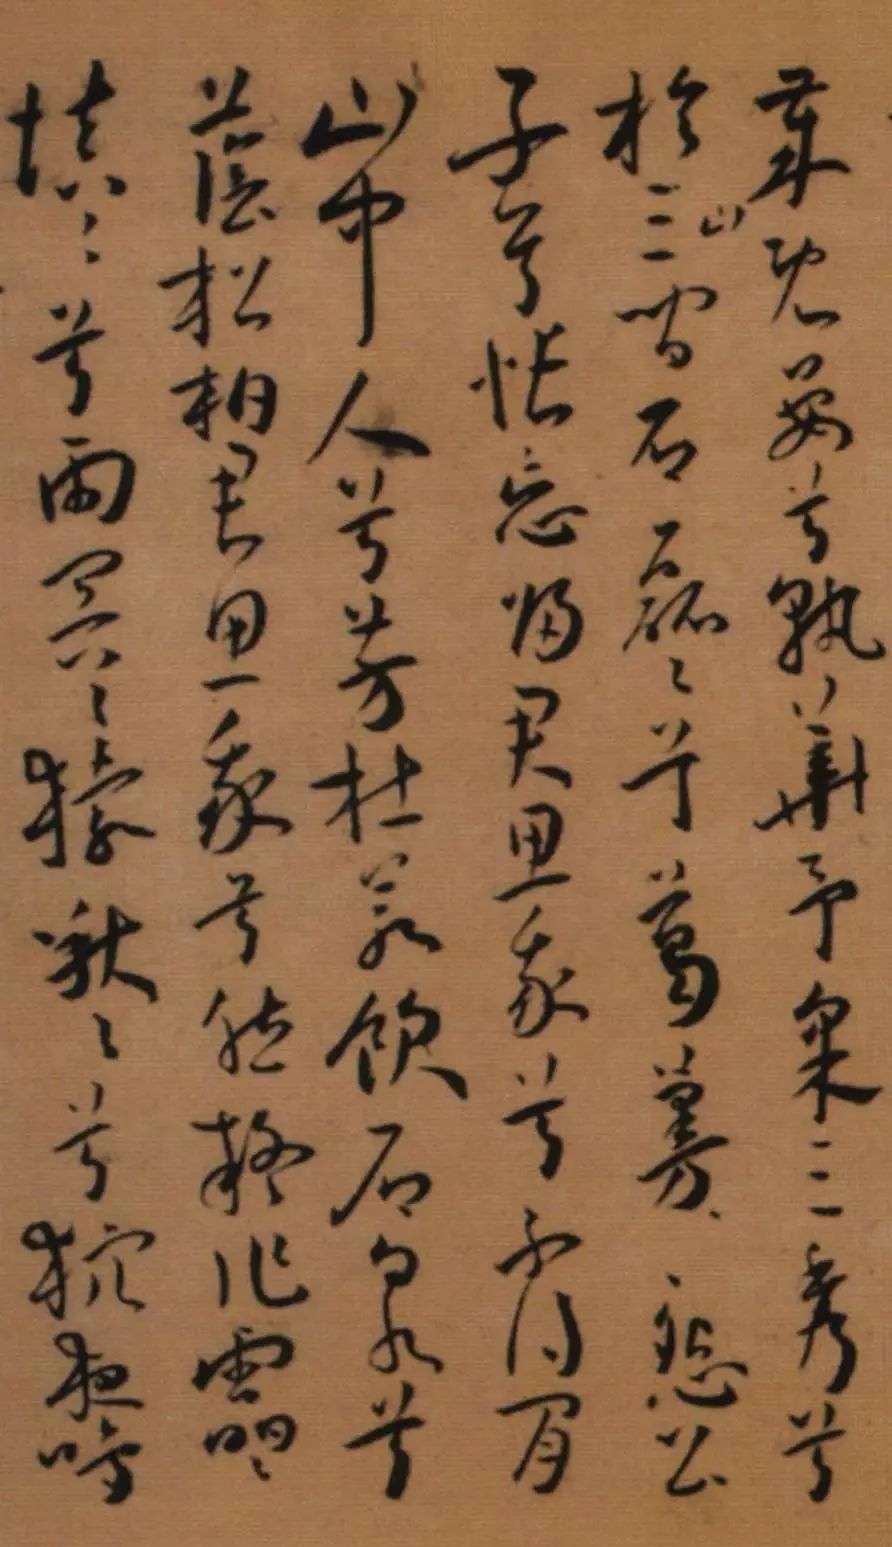 歲既晏兮孰華予采三秀兮
於三山間石磊〻兮葛蔓〻怨公
子兮悵忘歸君思我兮不得閒
山中人兮芳杜若飲石泉兮
蔭松柏君思我兮然疑作靁
填〻兮雨冥〻猨啾〻兮狖夜鳴